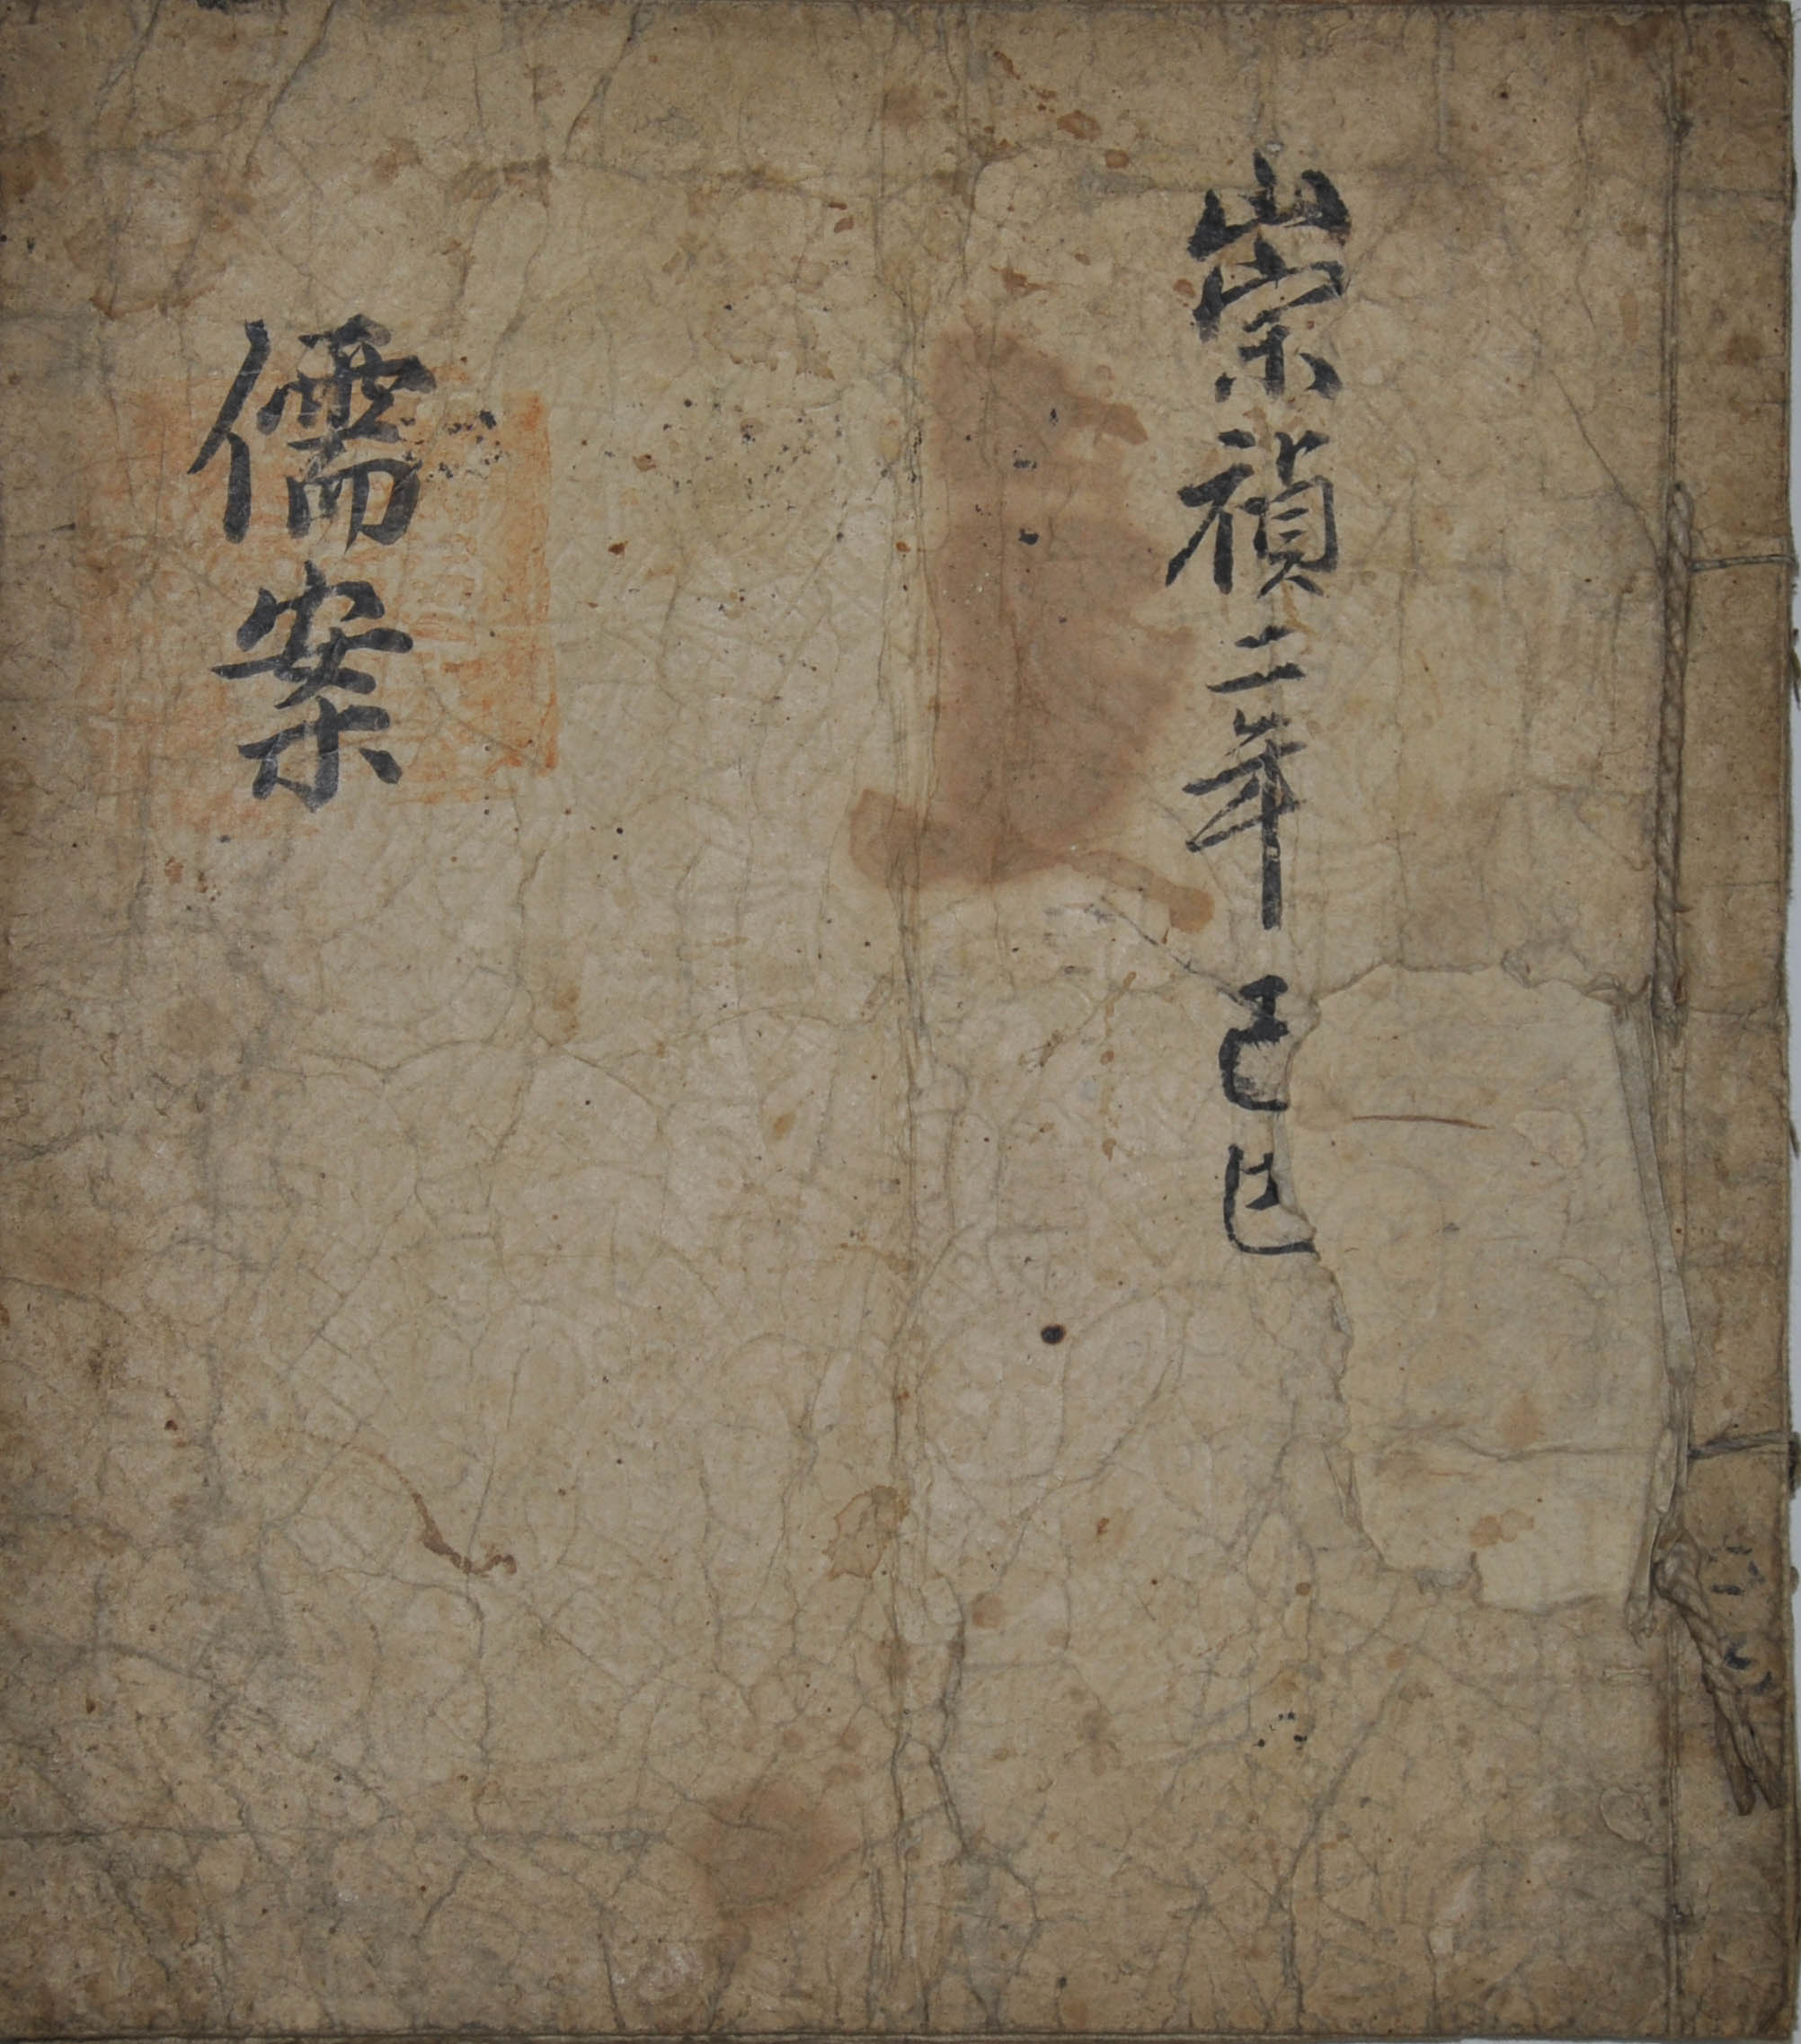 崇禎二年己巳
儒案